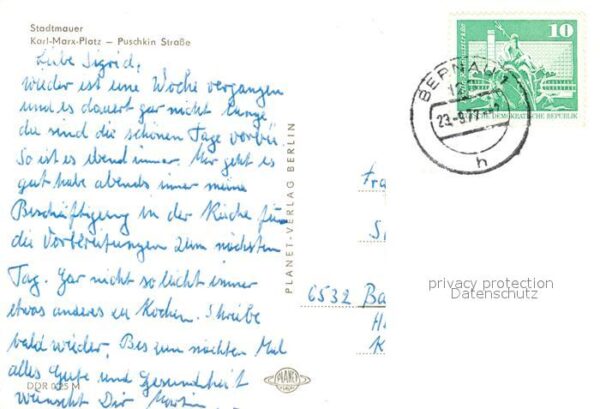 Stadtmauer
Karl-Marx-Platz – Puschkin Straße
Liebe Sigrid,
wieder ist eine Woche vergangen
und es dauert gar nicht lange
da sind die schönen Tage vorbei.
So ist es ebend immer. Mir geht es
gut habe abends immer meine
Beschäftigung in der Küche für
die Vorbereitungen zum nächsten
Tag. Gar nicht so leicht immer
etwas anderes zu Kochen. Schreibe
bald wieder. Bis zum nächsten Mal
alles Gute und Gesundheit
wünscht Dir
DDR 0,25 M
PLANET-VERLAG BERLIN
PLANET
10
DEMOKRATISCHE REPUBLIK
BERNAU 1
h
Fra
S
6532 Ba
H
K
privacy protection
Datenschutz